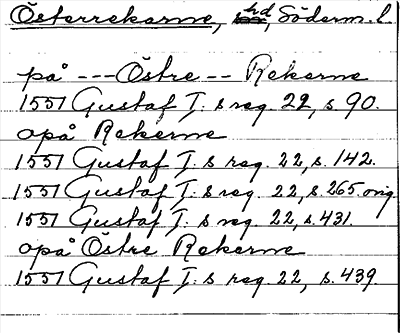 Österrekarne, hd, Söderm. l.
på --- Östre -- Rekarne
1551 Gustaf I:s reg. 22, s 90.
apå Rekarne
1551 Gustaf I:s reg. 22, s. 142.
1551 Gustaf I:s reg. 22, s. 265 orig.
1551 Gustaf I:s reg. 22, s. 431.
apå Östre Rekarne
1551 Gustaf I:s reg. 22, s. 439.